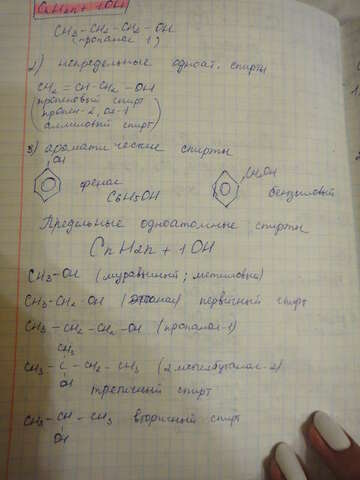 CnH2n+1OH
CH3-CH2-CH2-OH
(пропанол 1)
2) непредельные одноат. спирты
CH2=CH-CH2-OH
пропеновый спирт
(пропен-2, ол-1
аллиловый спирт)
3) ароматические спирты
OH
CH2OH
фенол
бензиловый
C6H5OH
Предельные одноатомные спирты
CnH2n+1OH
CH3-OH (муравьиный; метиловый)
CH3-CH2-OH (этанол) первичный спирт
CH3-CH2-CH2-OH (пропанол-1)
CH3
CH3-C-CH2-CH3 (2 метилбутанол-2)
OH
третичный спирт
CH3-CH-CH3 вторичный спирт
OH